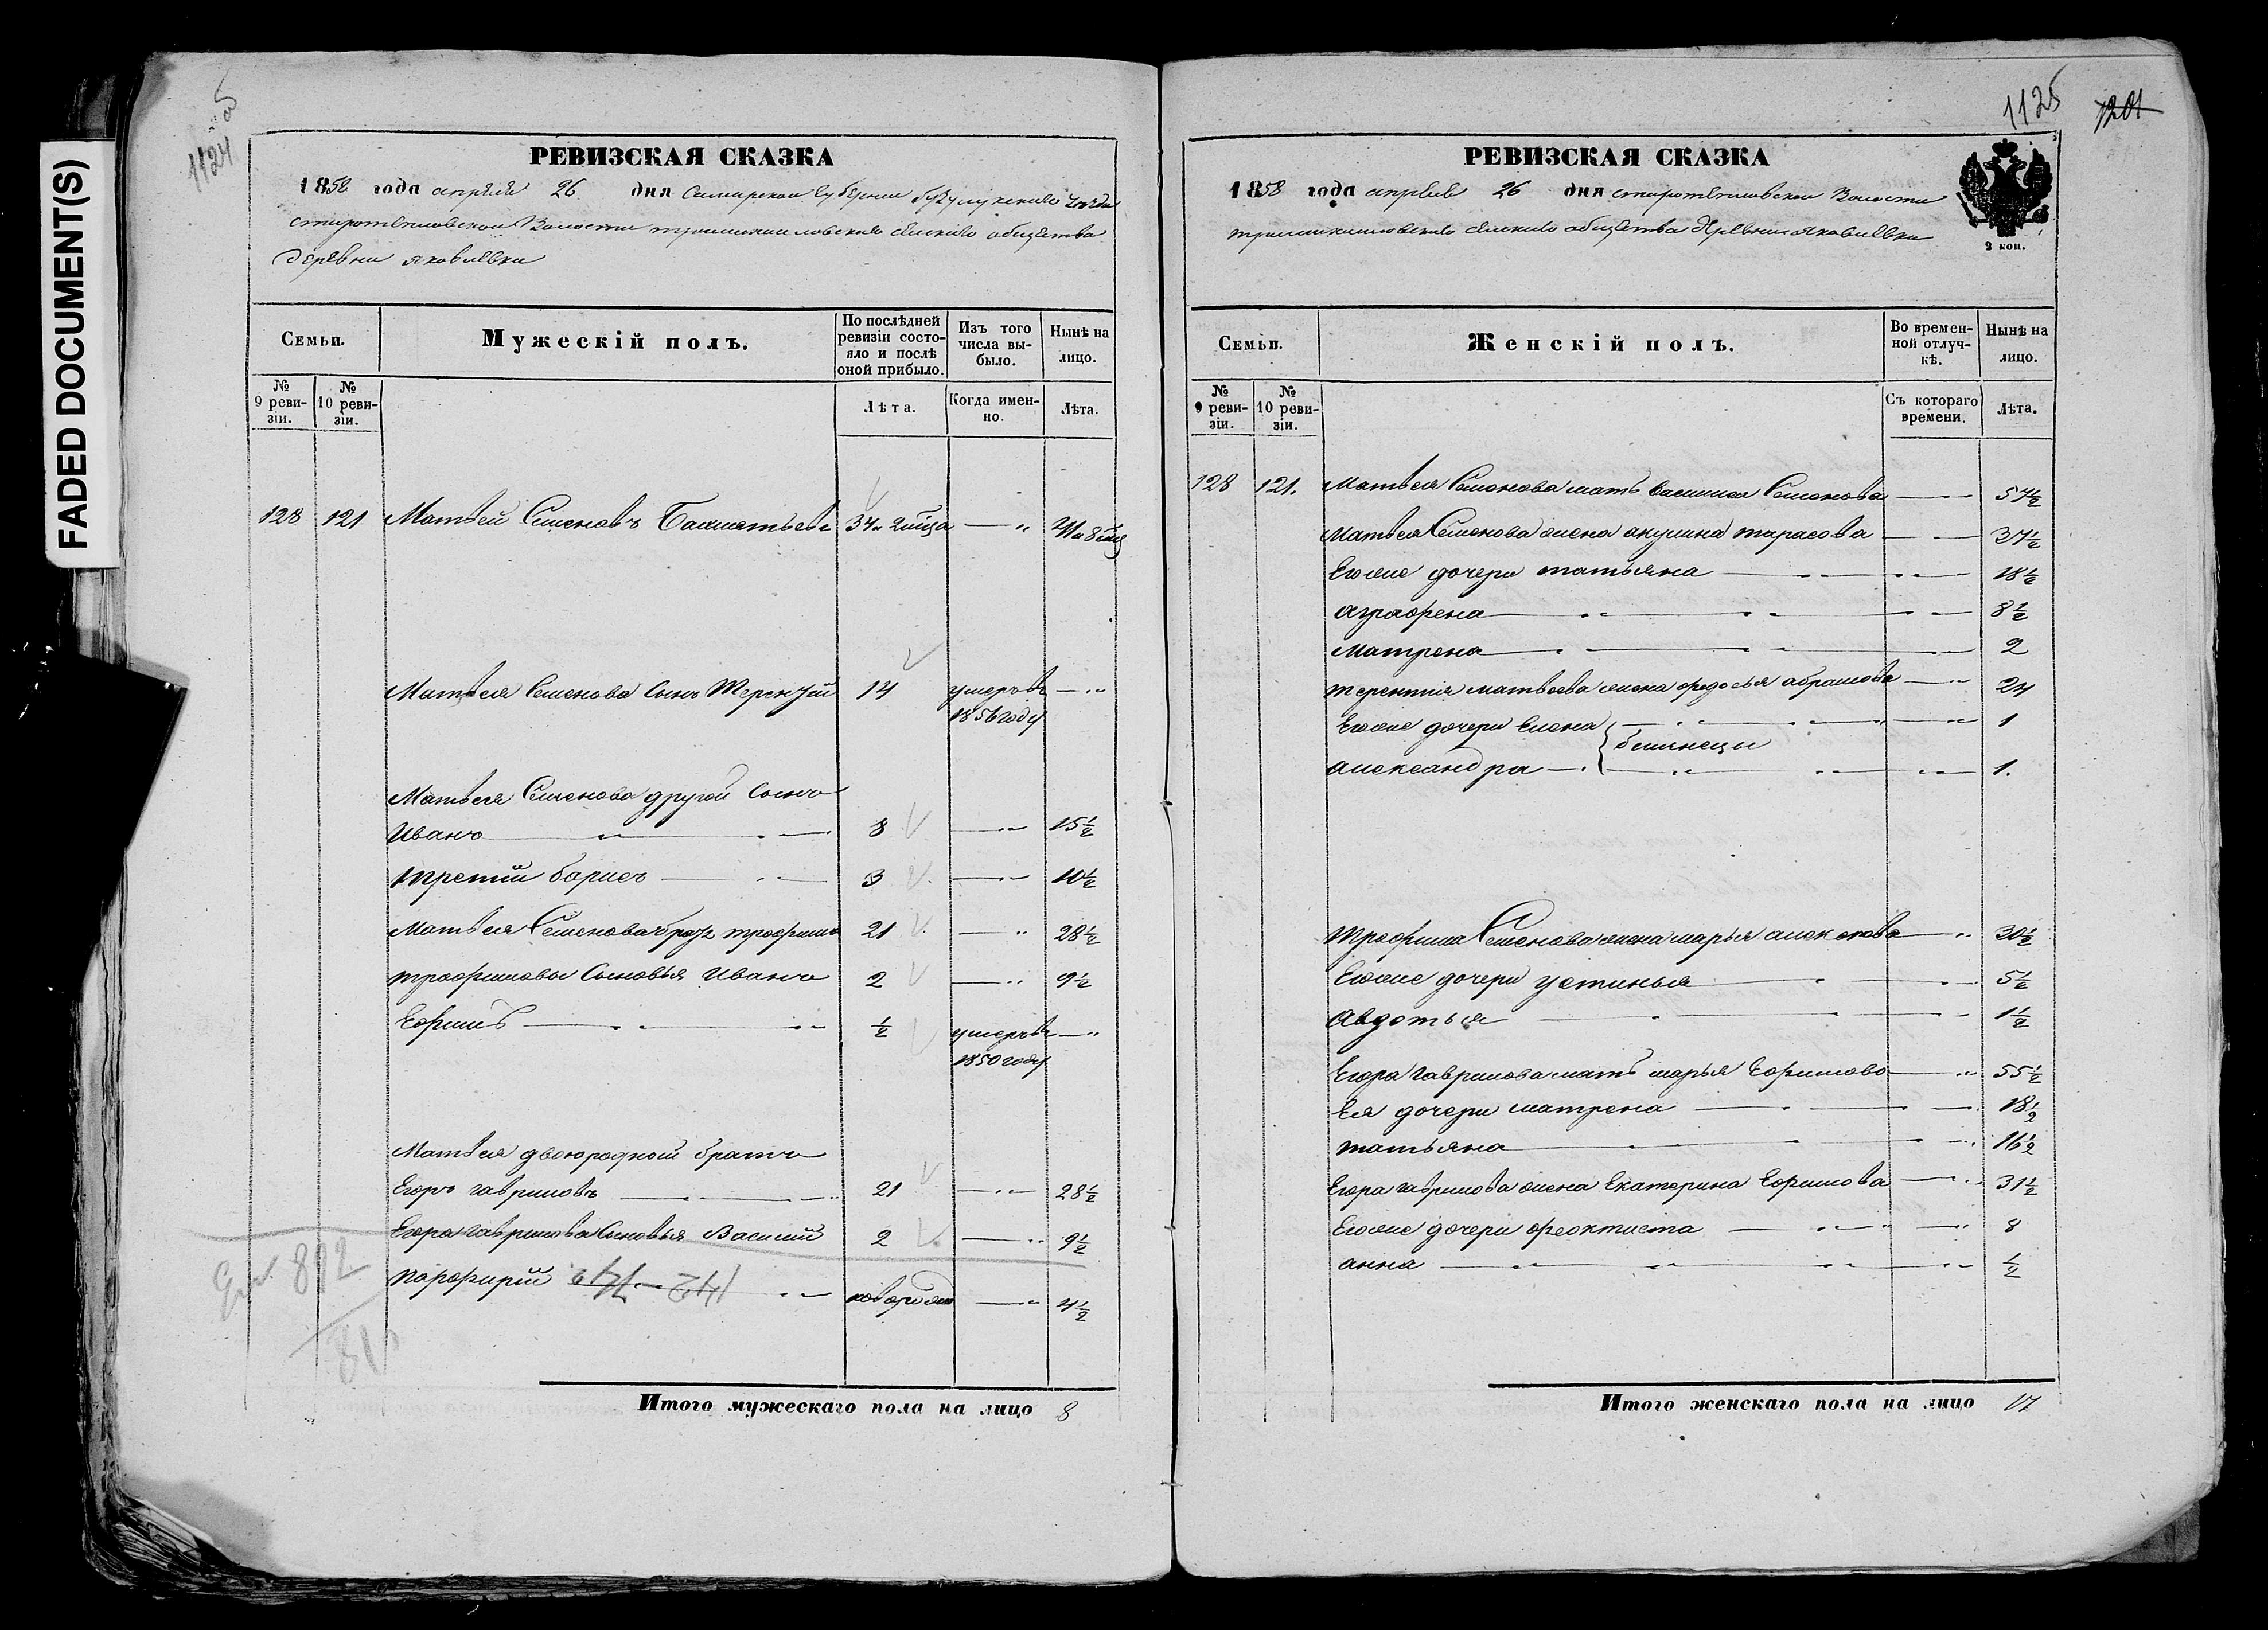 FADED DOCUMENT(S)
1124
РЕВИЗСКАЯ СКАЗКА
1858 года апреля 26 дня Самарской губернии бузулукского уезда
старотепловской Волости сельского общества
деревни яковлевки
Семьи.
Мужескій полъ.
По послѣдней ревизіи состояло и послѣ оной прибыло.
Изъ того числа выбыло.
Нынѣ на лицо.
№ 9 ревизіи.
№ 10 ревизіи.
Лѣта.
Когда именно.
Лѣта.
128 121 Матвей Семеновъ 34
Матвея Семенова Сынъ Терентий 14 умеръ въ
1856 году
Матвея Семенова другой Сынъ
Иванъ 8 15½
третий борисъ 3 10½
Матвея Семенова братъ трофимъ 21 28½
трофимовы Сыновья Иванъ 2 9½
Ефимъ ½ умеръ въ
1850 году
Матвея двоюродной братъ
Егоръ гавриловъ 21 28½
Егора гаврилова Сыновья Василий 2 9½
парфирий новорожд 4½
892
Итого мужескаго пола на лицо 8
1125
1201
РЕВИЗСКАЯ СКАЗКА
1858 года апреля 26 дня старотепловской Волости
сельского общества деревни яковлевки
2 коп.
Семьи.
Женскій полъ.
Во временной отлучкѣ.
Нынѣ на лицо.
№ 9 ревизіи.
№ 10 ревизіи.
Съ котораго времени.
Лѣта.
128 121. Матвея Семенова мать Семенова 57½
Матвея Семенова жена акулина тарасова 37½
Его же дочери татьяна 18½
аграфена 8½
матрена 2
терентия матвеева жена федосья абрамова 24
Его же дочери Елена 1
близнецы
александра 1.
трофима Семенова жена марья 30½
Его же дочери устинья 5½
авдотья 1½
Егора гаврилова мать марья Ефимова 55½
Ея дочери матрена 18½
татьяна 16½
Егора гаврилова жена Екатерина Ефимова 31½
Его же дочери феоктиста 8
анна ½
Итого женскаго пола на лицо 17